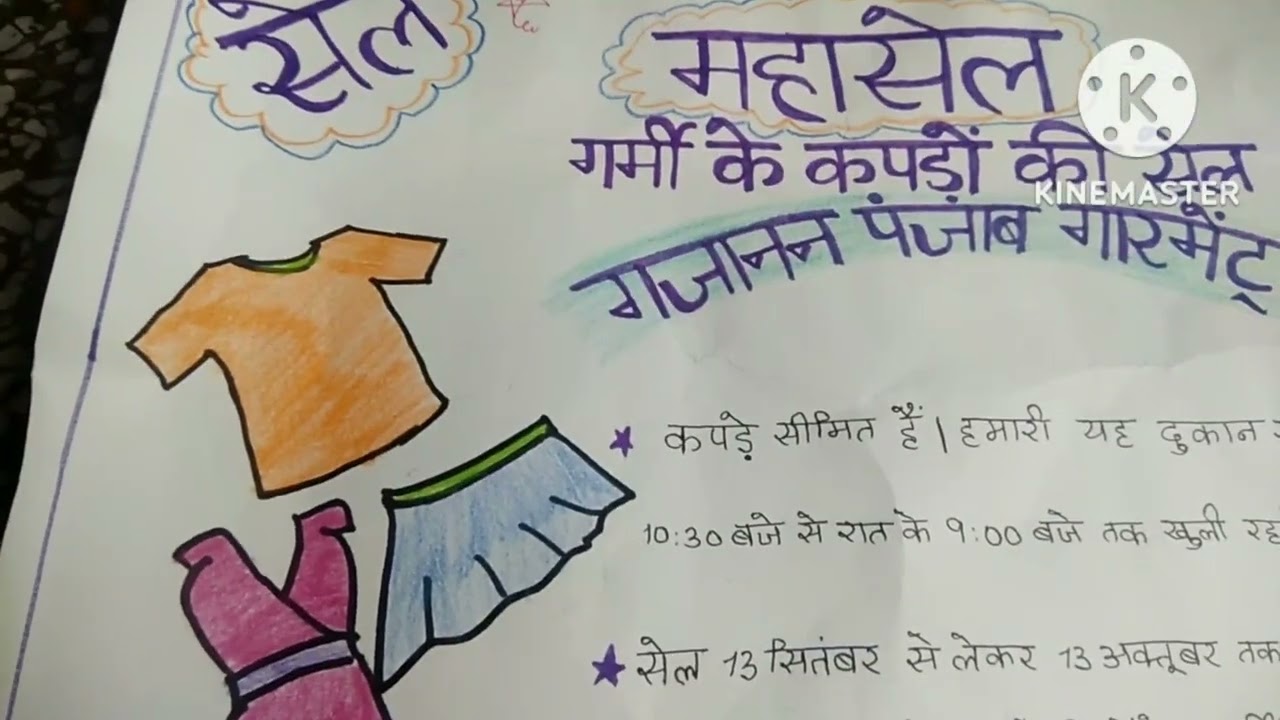 सेल
महासेल
गर्मी के कपड़ों की सेल
K
KINEMASTER
गजानन पंजाब गारमेंट्
★ कपड़े सीमित हैं। हमारी यह दुकान
10:30 बजे से रात के 9:00 बजे तक खुली रह
★ सेल 13 सितंबर से लेकर 13 अक्तूबर तक